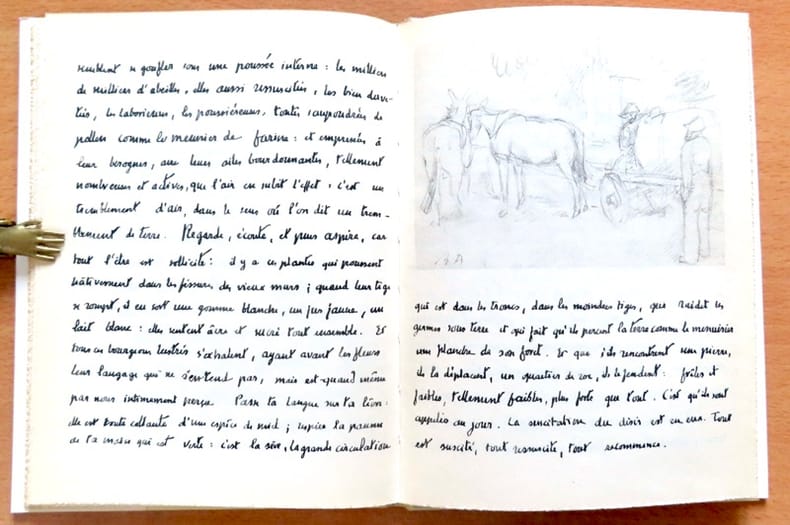 semblent se gonfler sous une poussée interne : les milliers
de milliers d'abeilles, elles aussi ressuscitées, les bien duve-
tées, les laborieuses, les poussiéreuses, toutes saupoudrées de
pollen comme le meunier de farine : et empressées à
leur besogne, avec leurs ailes bourdonnantes, tellement
nombreuses et actives, que l'air en subit l'effet : c'est un
tremblement d'air, dans le sens où l'on dit un trem-
blement de terre. Regarde, écoute, et puis aspire, car
tout l'être est sollicité : il y a ces plantes qui poussent
hâtivement dans les fissures des vieux murs ; quand leur tige
se rompt, il en sort une gomme blanche, un jus jaune, un
lait blanc : elles sentent âcre et sucré tout ensemble. Et
tous ces bourgeons lustrés s'exhalent, ayant avant les fleurs
leur langage qui ne s'entend pas, mais est quand même
par nous intimement perçu. Passe ta langue sur ta lèvre :
elle est toute collante d'une espèce de miel ; respire la paume
de ta main qui est verte : c'est la sève, la grande circulation
qui est dans les troncs, dans les moindres tiges, que raidit les
germes sous terre et qui fait qu'ils percent la terre comme le menuisier
une planche de son foret. Et que s'ils rencontrent une pierre,
ils la déplacent, un quartier de roc, ils le fendent : frêles et
faibles, tellement faibles, plus forts que tout. C'est qu'ils sont
appelés au jour. La suscitation du désir est en eux. Tout
est suscité, tout ressuscite, tout recommence.